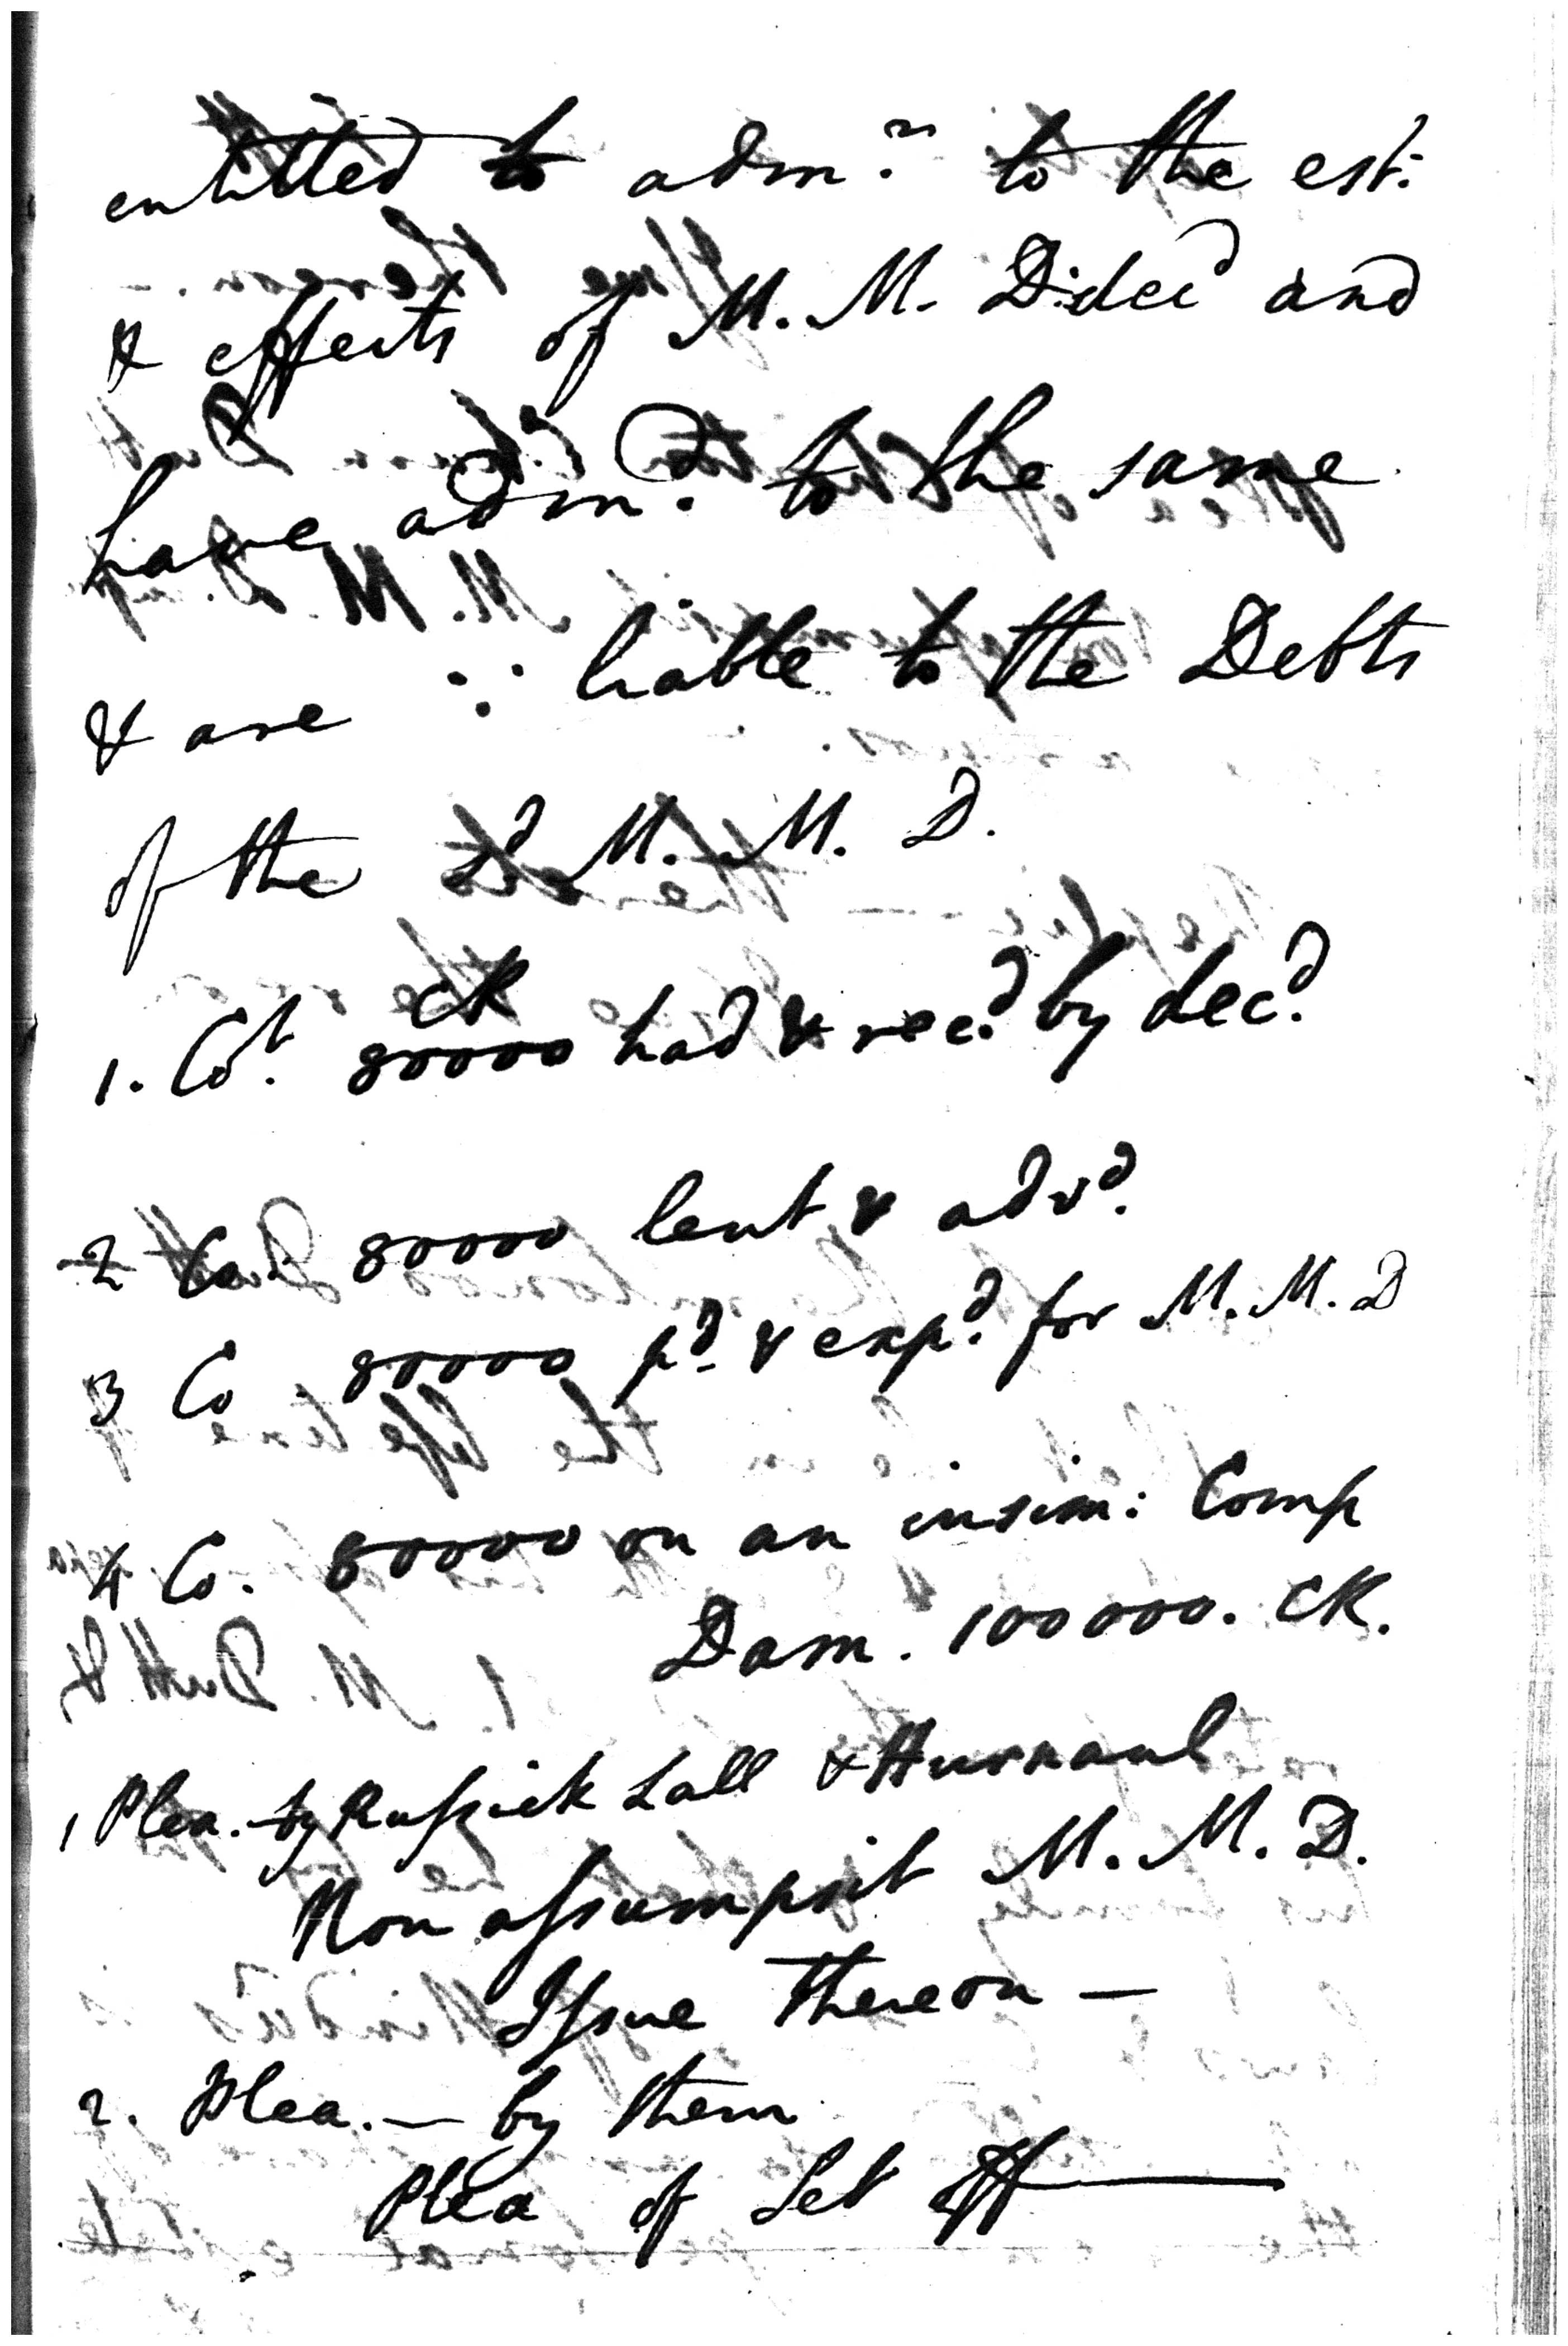 entitled to adm.n to the est:
& effects of M. M. D. decd and
have adm.d to the same
& are ∵ liable to the Debts
of the sd M. M. D.
1. Co.t CR 80000 had & rec.d by dec.d
2 Co. 80000 lent & adv.d
3 Co 80000 pd & exp.d for M. M. D
4 Co. 80000 on an insim: Comp
Dam. 100000. CR.
1 Plea. by Russick Lall & Hurnaul
Non assumpsit M. M. D.
Issue thereon —
2. Plea. — by them
Plea of Set off —